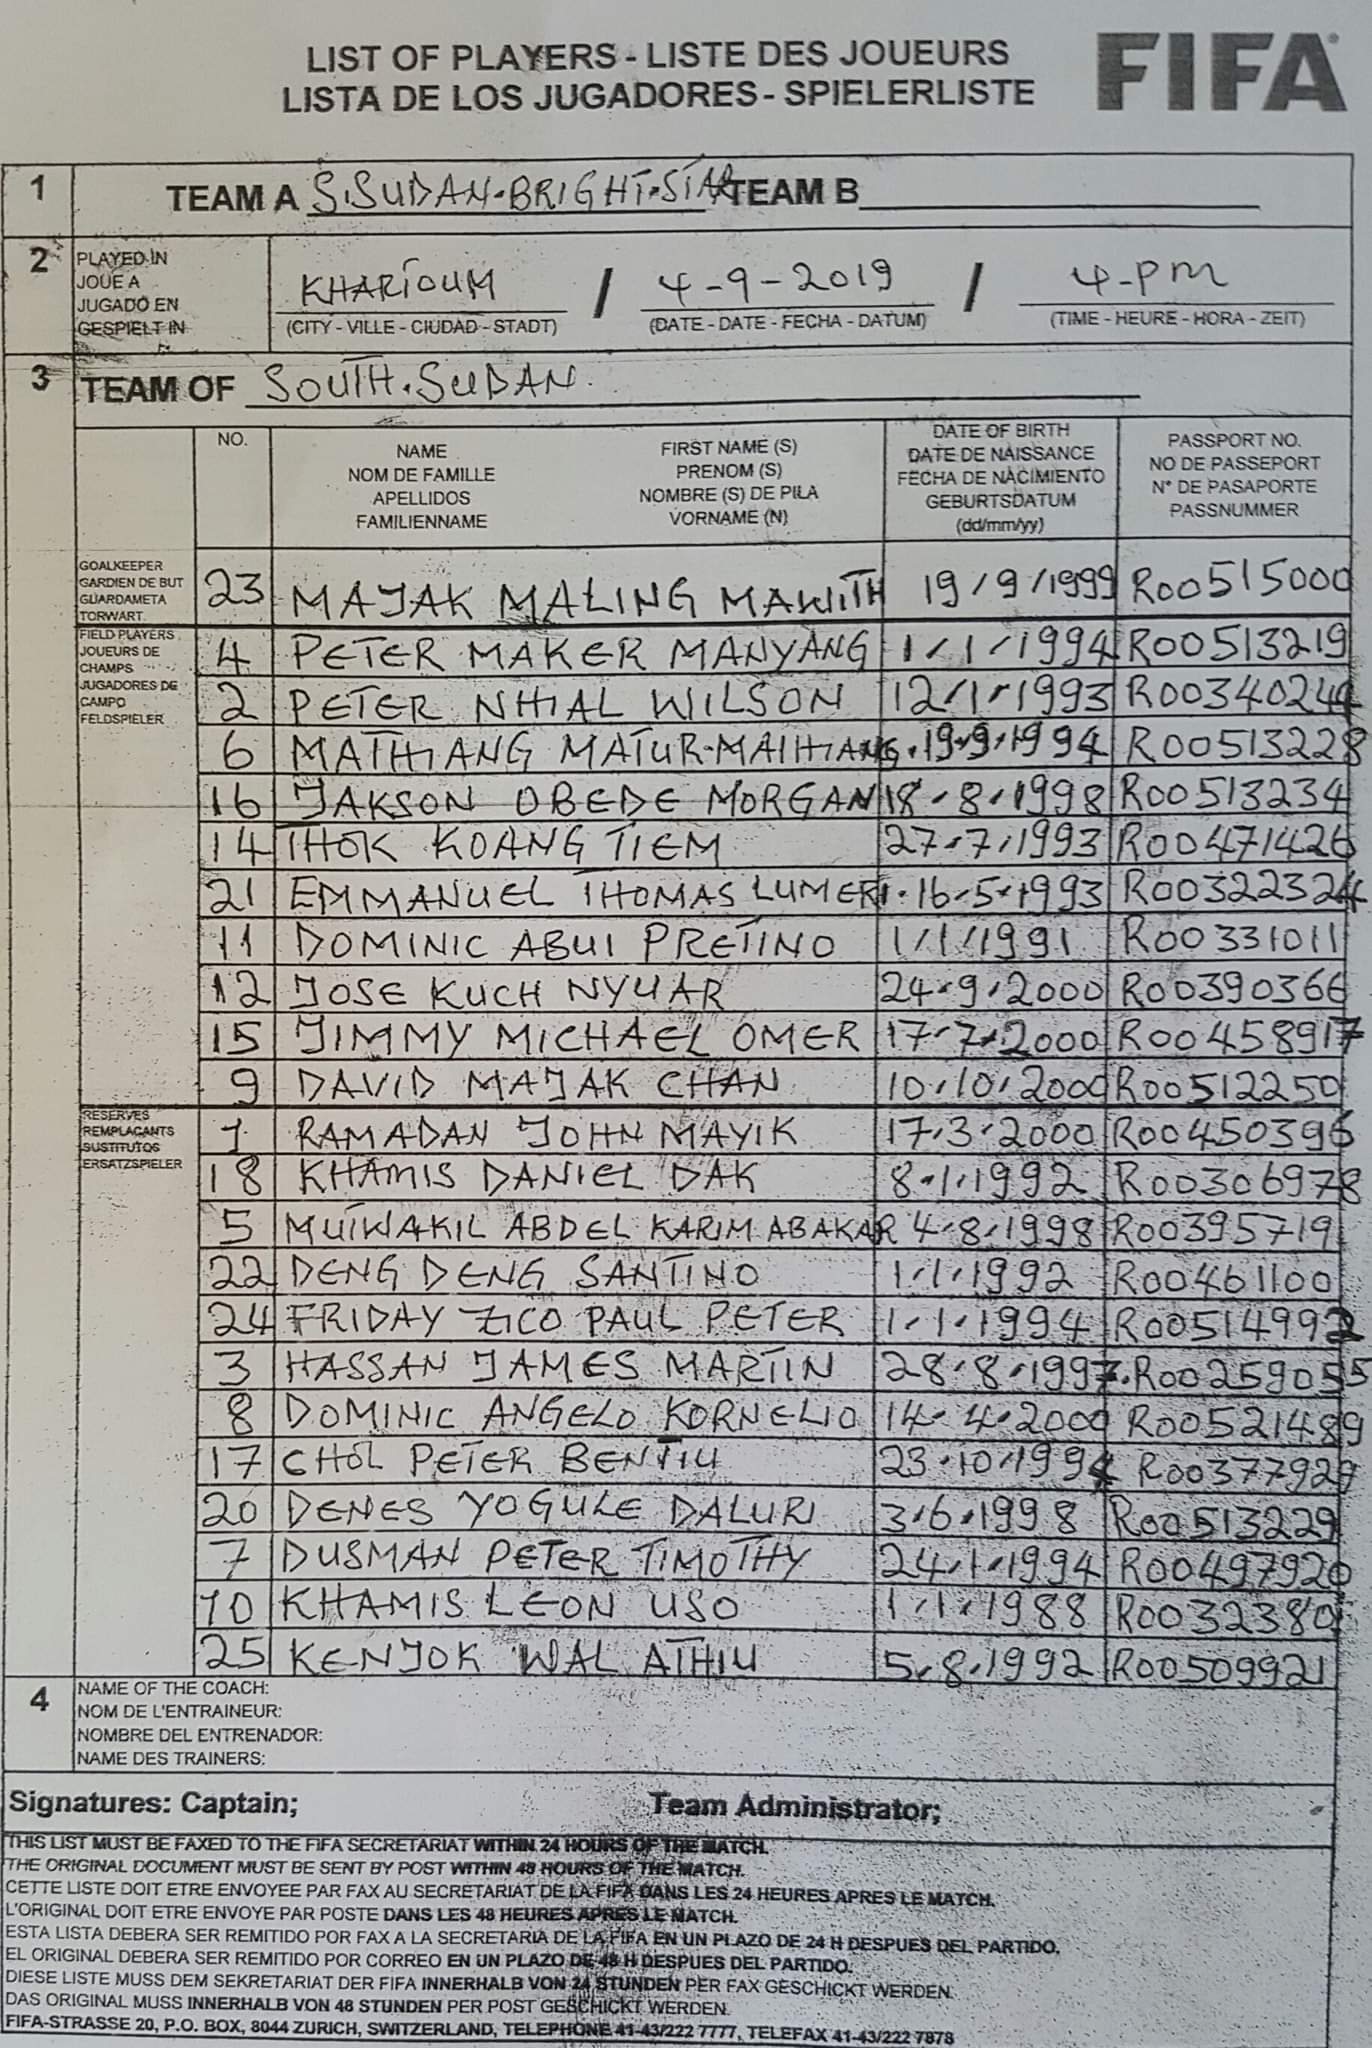 LIST OF PLAYERS - LISTE DES JOUEURS
LISTA DE LOS JUGADORES - SPIELERLISTE
FIFA
1 TEAM A S.SUDAN.BRIGHT.STAR TEAM B
2 PLAYED IN
JOUE A
JUGADO EN
GESPIELT IN
KHARTOUM / 4-9-2019 / 4-PM
(CITY - VILLE - CIUDAD - STADT) (DATE - DATE - FECHA - DATUM) (TIME - HEURE - HORA - ZEIT)
3 TEAM OF SOUTH.SUDAN.
NO.
NAME
NOM DE FAMILLE
APELLIDOS
FAMILIENNAME
FIRST NAME (S)
PRENOM (S)
NOMBRE (S) DE PILA
VORNAME (N)
DATE OF BIRTH
DATE DE NAISSANCE
FECHA DE NACIMIENTO
GEBURTSDATUM
(dd/mm/yy)
PASSPORT NO.
NO DE PASSEPORT
N° DE PASAPORTE
PASSNUMMER
GOALKEEPER
GARDIEN DE BUT
GUARDAMETA
TORWART
23 MAJAK MALING MAWITH 19/9/1999 R00515000
FIELD PLAYERS
JOUEURS DE
CHAMPS
JUGADORES DE
CAMPO
FELDSPIELER
4 PETER MAKER MANYANG 1/1/1994 R00513219
2 PETER NHIAL WILSON 12/1/1993 R00340244
6 MATHIANG MATUR-MATHIANG 19.9.1994 R00513228
16 JAKSON OBEDE MORGAN 18.8.1998 R00513234
14 THOK KOANG TIEM 27.7.1993 R00471426
21 EMMANUEL THOMAS LUMERI 16.5.1993 R00322324
11 DOMINIC ABUI PRETINO 1/1/1991 R00331011
12 JOSE KUCH NYUAR 24.9.2000 R00390366
15 JIMMY MICHAEL OMER 17.7.2000 R00458917
9 DAVID MAJAK CHAN 10.10.2000 R00512250
RESERVES
REMPLACANTS
SUSTITUTOS
ERSATZSPIELER
1 RAMADAN JOHN MAYIK 17.3.2000 R00450396
18 KHAMIS DANIEL DAK 8.1.1992 R00306978
5 MUTWAKIL ABDEL KARIM ABAKAR 4.8.1998 R00395719
22 DENG DENG SANTINO 1.1.1992 R00461100
24 FRIDAY ZICO PAUL PETER 1.1.1994 R00514992
3 HASSAN JAMES MARTIN 28.8.1997 R00259055
8 DOMINIC ANGELO KORNELIO 14.4.2000 R00521489
17 CHOL PETER BENTIU 23.10.1994 R00377929
20 DENES YOGULE DALURI 3.6.1998 R00513229
7 DUSMAN PETER TIMOTHY 24.1.1994 R00497920
10 KHAMIS LEON USO 1.1.1988 R0032380
25 KENJOK WAL ATHIU 5.8.1992 R00509921
4 NAME OF THE COACH:
NOM DE L'ENTRAINEUR:
NOMBRE DEL ENTRENADOR:
NAME DES TRAINERS:
Signatures: Captain; Team Administrator;
THIS LIST MUST BE FAXED TO THE FIFA SECRETARIAT WITHIN 24 HOURS OF THE MATCH.
THE ORIGINAL DOCUMENT MUST BE SENT BY POST WITHIN 48 HOURS OF THE MATCH.
CETTE LISTE DOIT ETRE ENVOYEE PAR FAX AU SECRETARIAT DE LA FIFA DANS LES 24 HEURES APRES LE MATCH.
L'ORIGINAL DOIT ETRE ENVOYE PAR POSTE DANS LES 48 HEURES APRES LE MATCH.
ESTA LISTA DEBERA SER REMITIDO POR FAX A LA SECRETARIA DE LA FIFA EN UN PLAZO DE 24 H DESPUES DEL PARTIDO.
EL ORIGINAL DEBERA SER REMITIDO POR CORREO EN UN PLAZO DE 48 H DESPUES DEL PARTIDO.
DIESE LISTE MUSS DEM SEKRETARIAT DER FIFA INNERHALB VON 24 STUNDEN PER FAX GESCHICKT WERDEN.
DAS ORIGINAL MUSS INNERHALB VON 48 STUNDEN PER POST GESCHICKT WERDEN.
FIFA-STRASSE 20, P.O. BOX, 8044 ZURICH, SWITZERLAND, TELEPHONE 41-43/222 7777, TELEFAX 41-43/222 7878